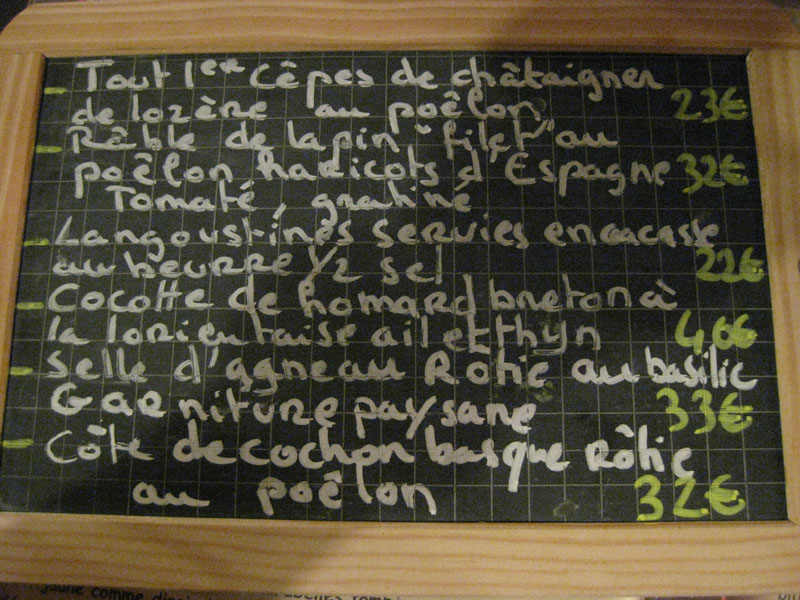 - Tout 1er Cêpes de châtaigner
de lozère au poêlon 23€
- Râble de lapin "filet" au
poêlon haricots d'Espagne 32€
Tomaté, gratiné
- Langoustines servies en cocasse
au beurre 1/2 sel 22€
- Cocotte de homard breton à
la lorientaise ail et thyn 46€
- Selle d'agneau Rotie au basilic
Garniture paysane 33€
- Côte de cochon basque Rôtie
au poêlon 32€
jaune comme